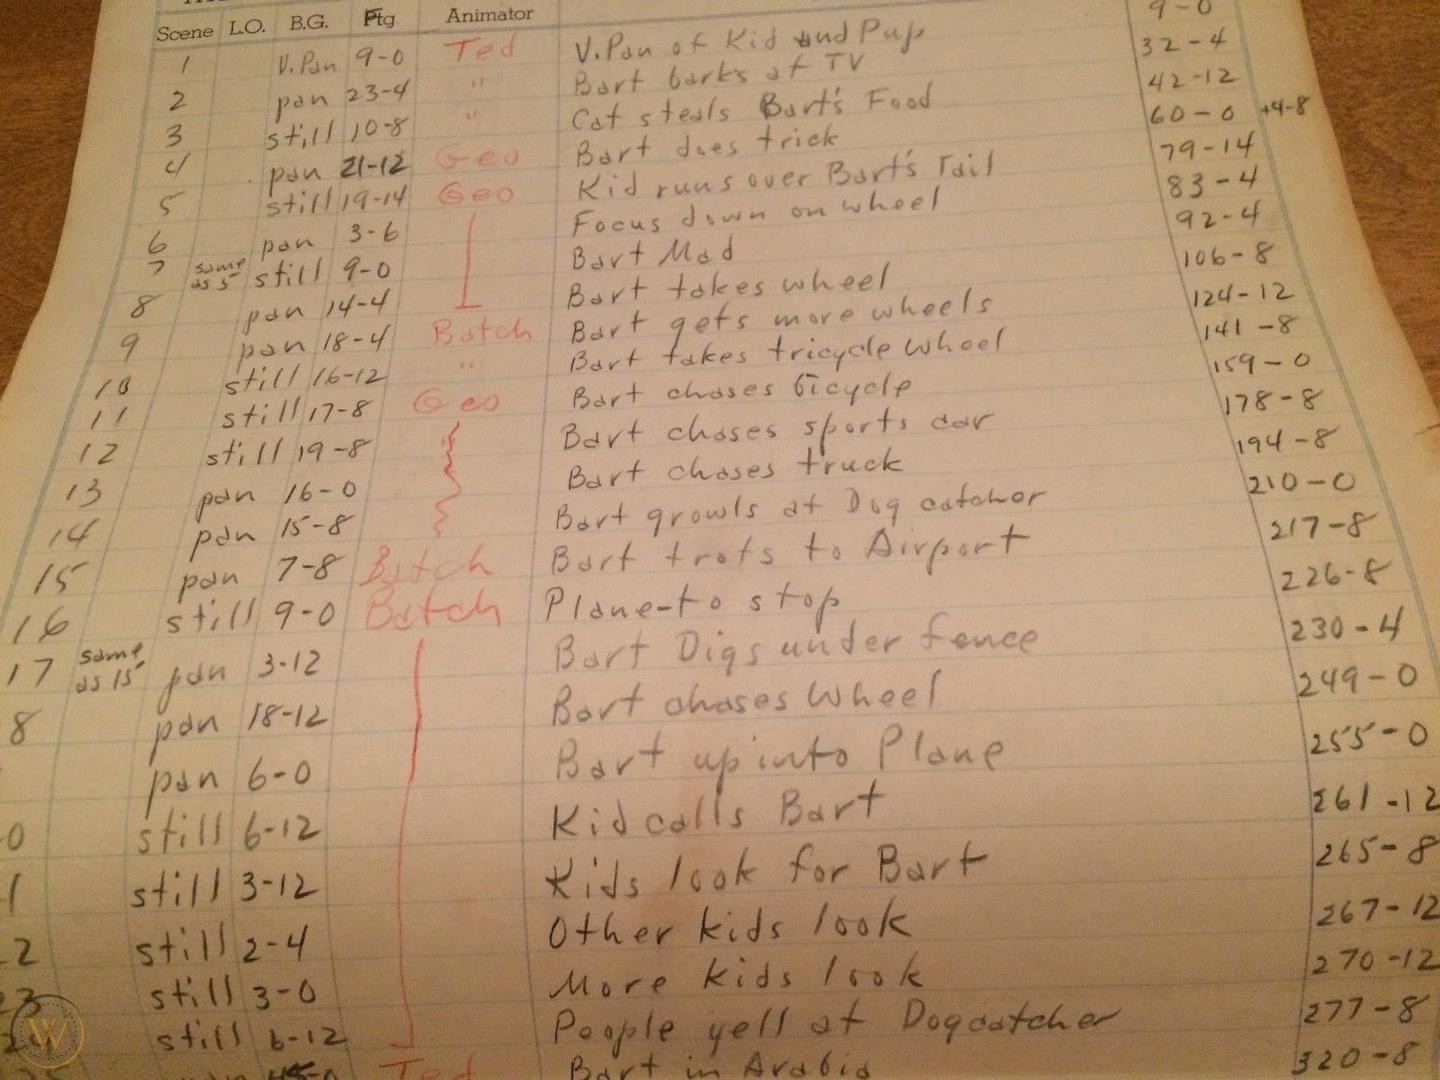 Scene L.O. B.G. Ftg Animator 9-0
1 V.Pan 9-0 Ted V.Pan of Kid and Pup 32-4
2 pan 23-4 " Bart barks at TV 42-12
3 still 10-8 " Cat steals Bart's Food 60-0 +4-8
4 pan 21-12 Geo Bart does trick 79-14
5 still 19-14 Geo Kid runs over Bart's Tail 83-4
6 pan 3-6 Focus down on wheel 92-4
7 same as 5 still 9-0 Bart Mad 106-8
8 pan 14-4 Bart takes wheel 124-12
9 pan 18-4 Batch Bart gets more wheels 141-8
10 still 16-12 " Bart takes tricycle wheel 159-0
11 still 17-8 Geo Bart chases bicycle 178-8
12 still 19-8 Bart chases sports car 194-8
13 pan 16-0 Bart chases truck 210-0
14 pan 15-8 Bart growls at Dog catcher 217-8
15 pan 7-8 Batch Bart trots to Airport 226-8
16 still 9-0 Batch Plane-to stop 230-4
17 same as 15 pan 3-12 Bart Digs under fence 249-0
8 pan 18-12 Bart chases Wheel 255-0
pan 6-0 Bart up into Plane 261-12
0 still 6-12 Kid calls Bart 265-8
1 still 3-12 Kids look for Bart 267-12
2 still 2-4 Other kids look 270-12
23 still 3-0 More kids look 277-8
still 6-12 People yell at Dogcatcher 320-8
Ted Bart in Arabia
W